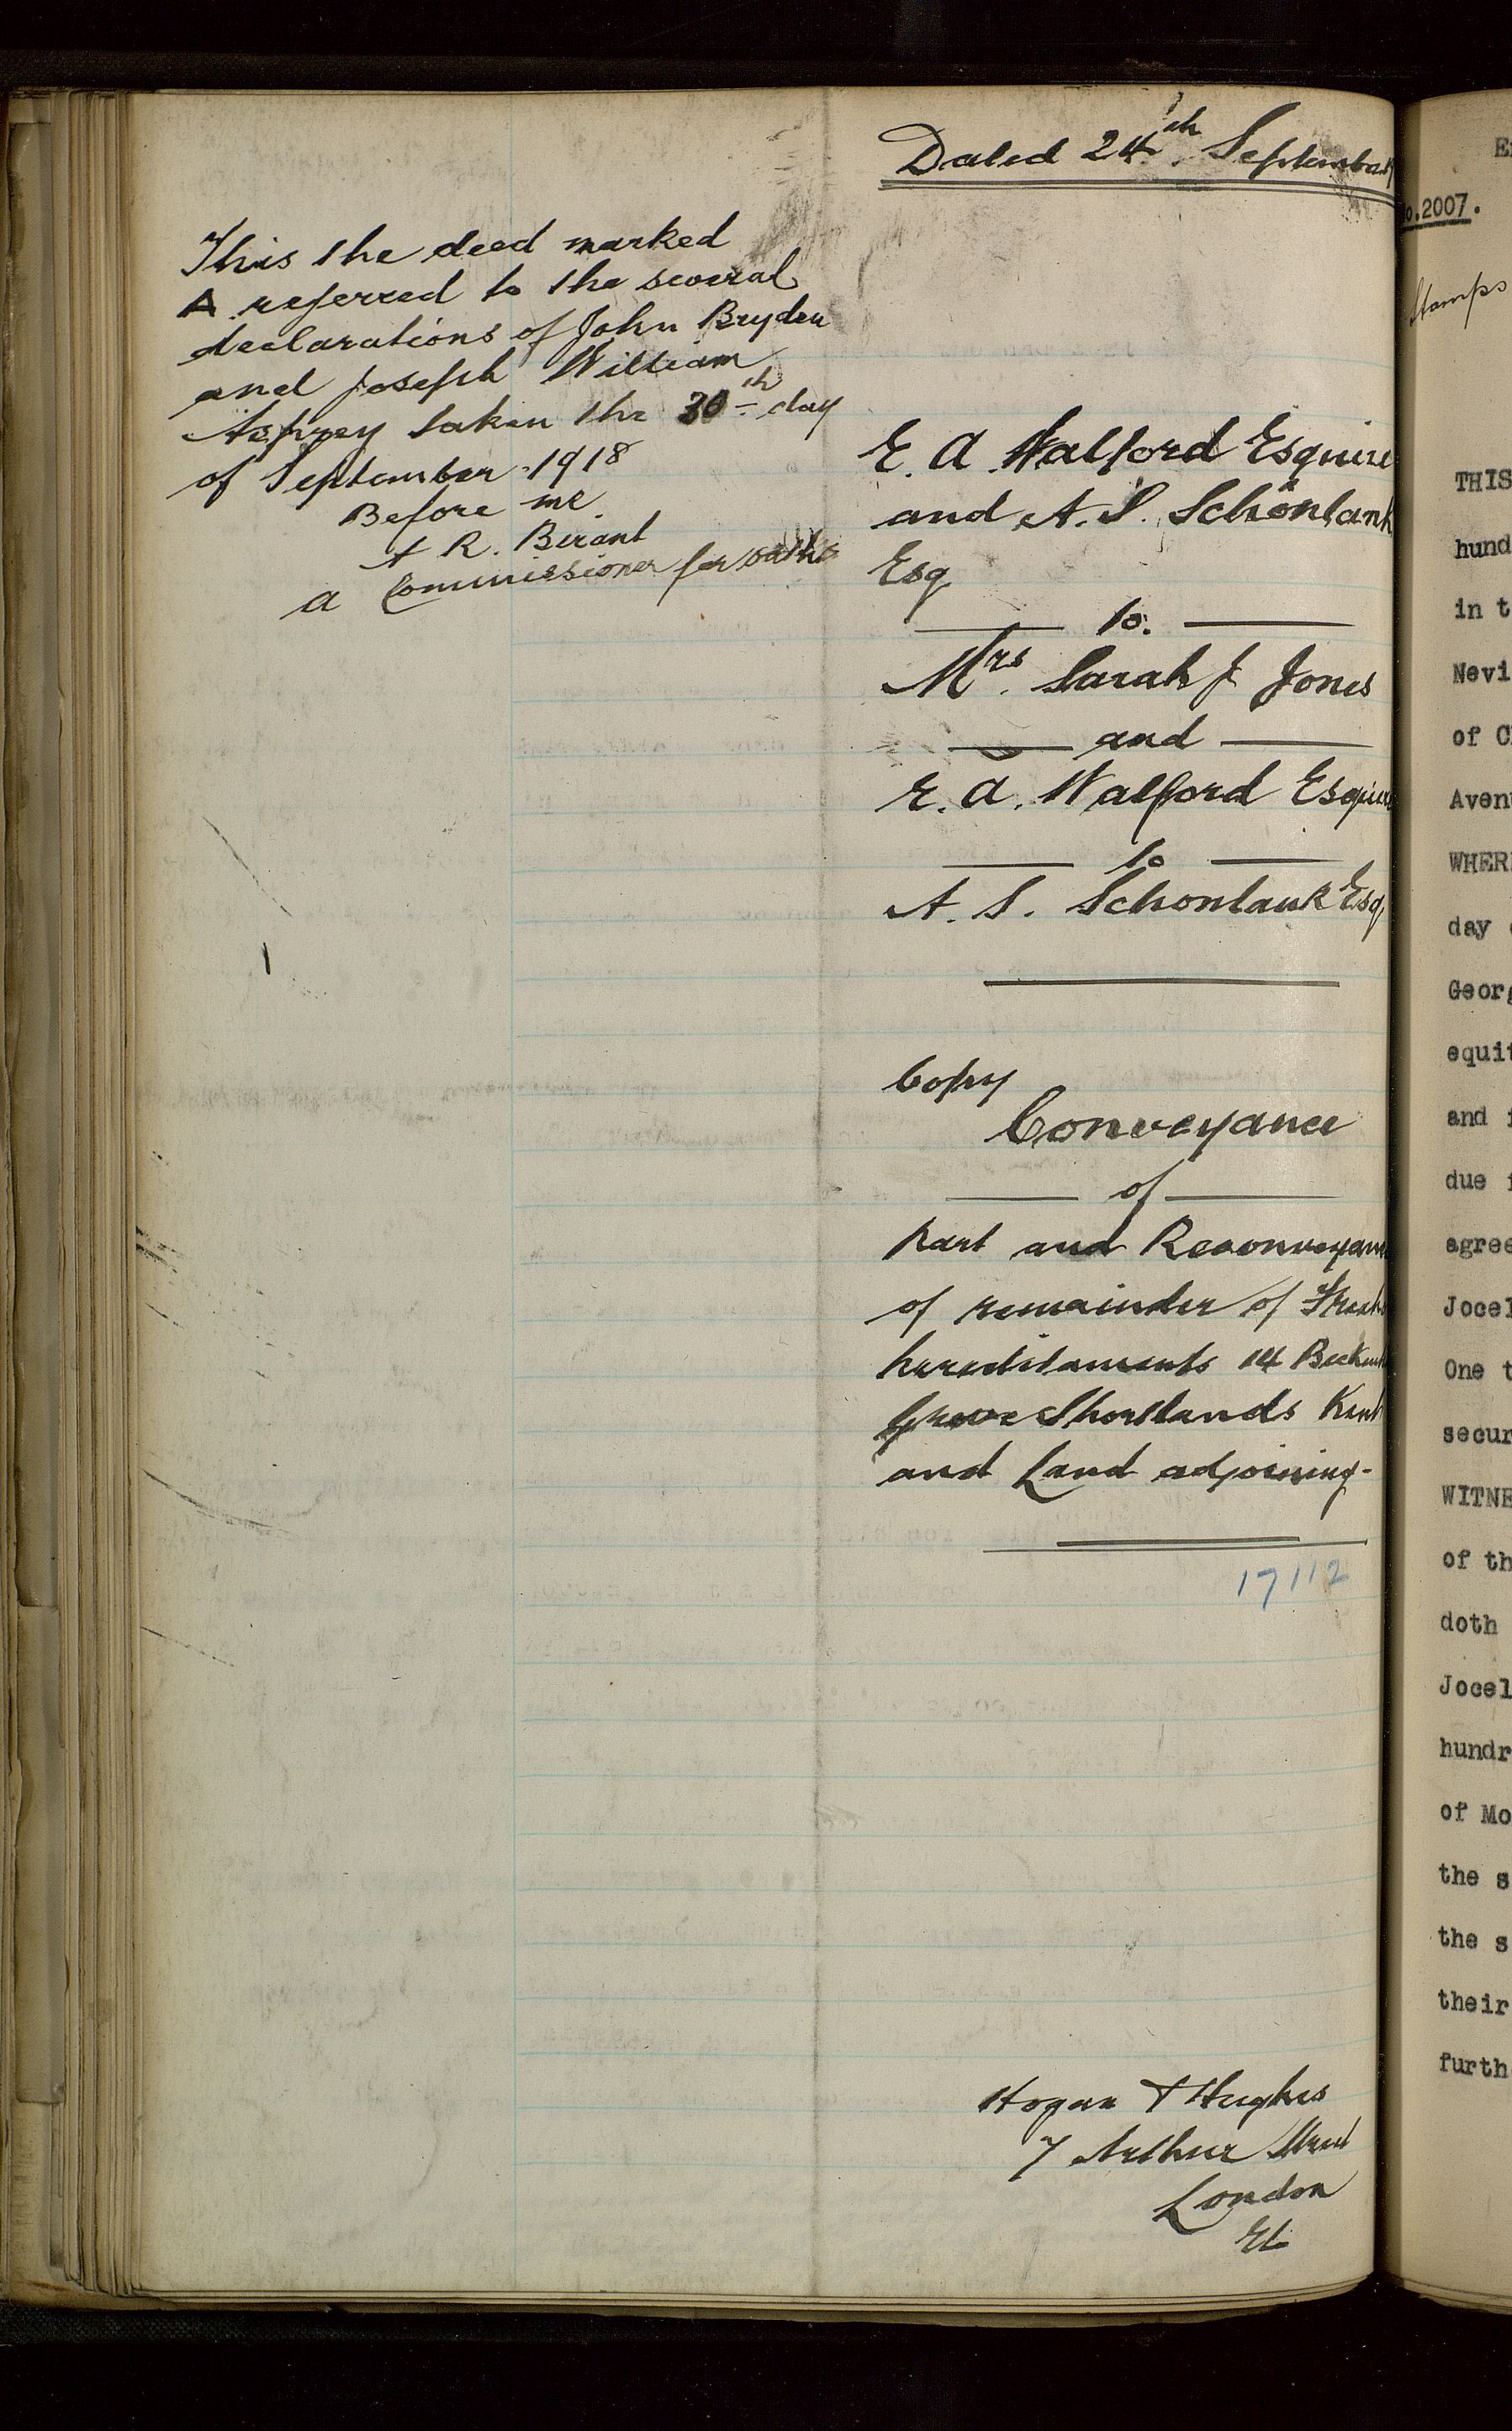 This the deed marked
A referred to the several
declarations of John Bryden
and Joseph William
Asprey taken the 30th day
of September 1918
Before me
A R. Berant
a Commissioner for oaths
Dated 24th September
E. A Walford Esquire
and A. S. Schönlank
Esq
to.
Mrs. Sarah J Jones
and
E. A. Walford Esquire
to
A. S. Schonlank Esq
Copy
Conveyance
of
Part and Reconveyance
of remainder of
hereditaments 14
Grove Shortlands Kent
and Land adjoining-
17112
Hogan & Hughes
7 Arthur Street
London
EC
E
o.2007.
Stamps
THIS
hund
in t
Nevi
of C
Aven
WHER
day
Georg
equit
and
due
agree
Jocel
One t
secur
WITNE
of th
doth
Jocel
hundr
of Mo
the s
the s
their
furth